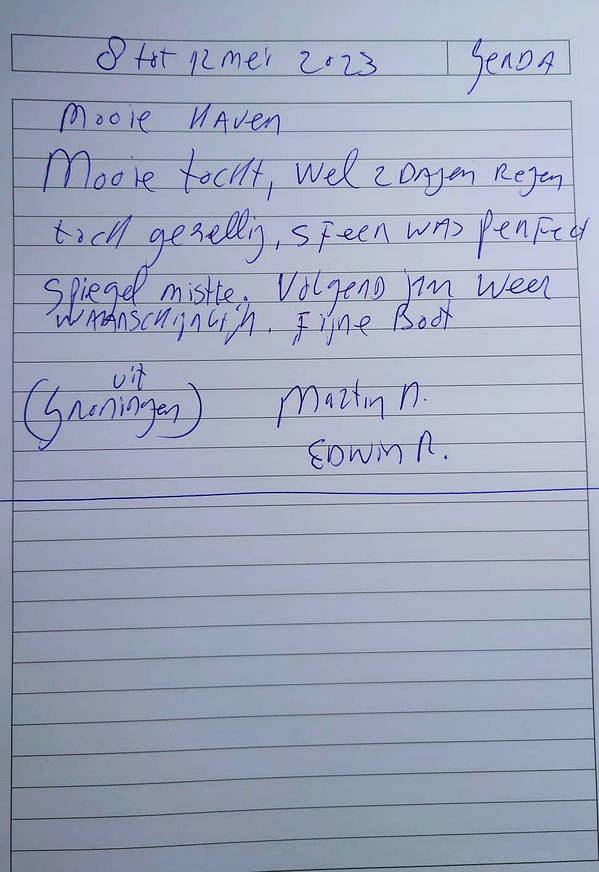 8 tot 12 mei 2023 GERDA
Mooie HAven
Mooie tocht, wel 2 DAgen Regen
toch gezellig, sfeer was perfect
Spiegel mistte. Volgend jaar weer
WAARSCHIJNLIJK. Fijne Boot
(uit
Groningen) Martin R.
EDWIN R.